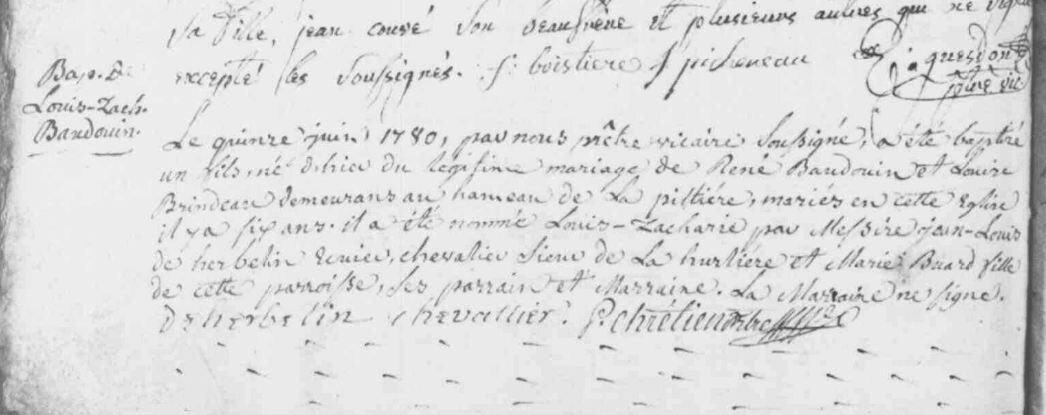 sa fille, jean couré son beaufrère et plusieurs autres qui ne signe
excepté les soussignés. f: boistiere f picheneau
Bap. de
Louis-Zach.
Baudouin.
Le quinze juin 1780, par nous prêtre vicaire soussigné, a été baptisé
un fils, né d'hier du légitime mariage de René Baudouin et Louise
Brindeau demeurans au hameau de La pittiére, mariés en cette Eglise
il y a six ans. il a été nommé Louis-Zacharie par Messire jean-Louis
de herbelin Ecuier, chevalier sieur de La hurtiére et Marie Buard fille
de cette parroisse, ses parrain et Marraine. La Marraine ne signe.
De herbelin chevallier. P. chrétien